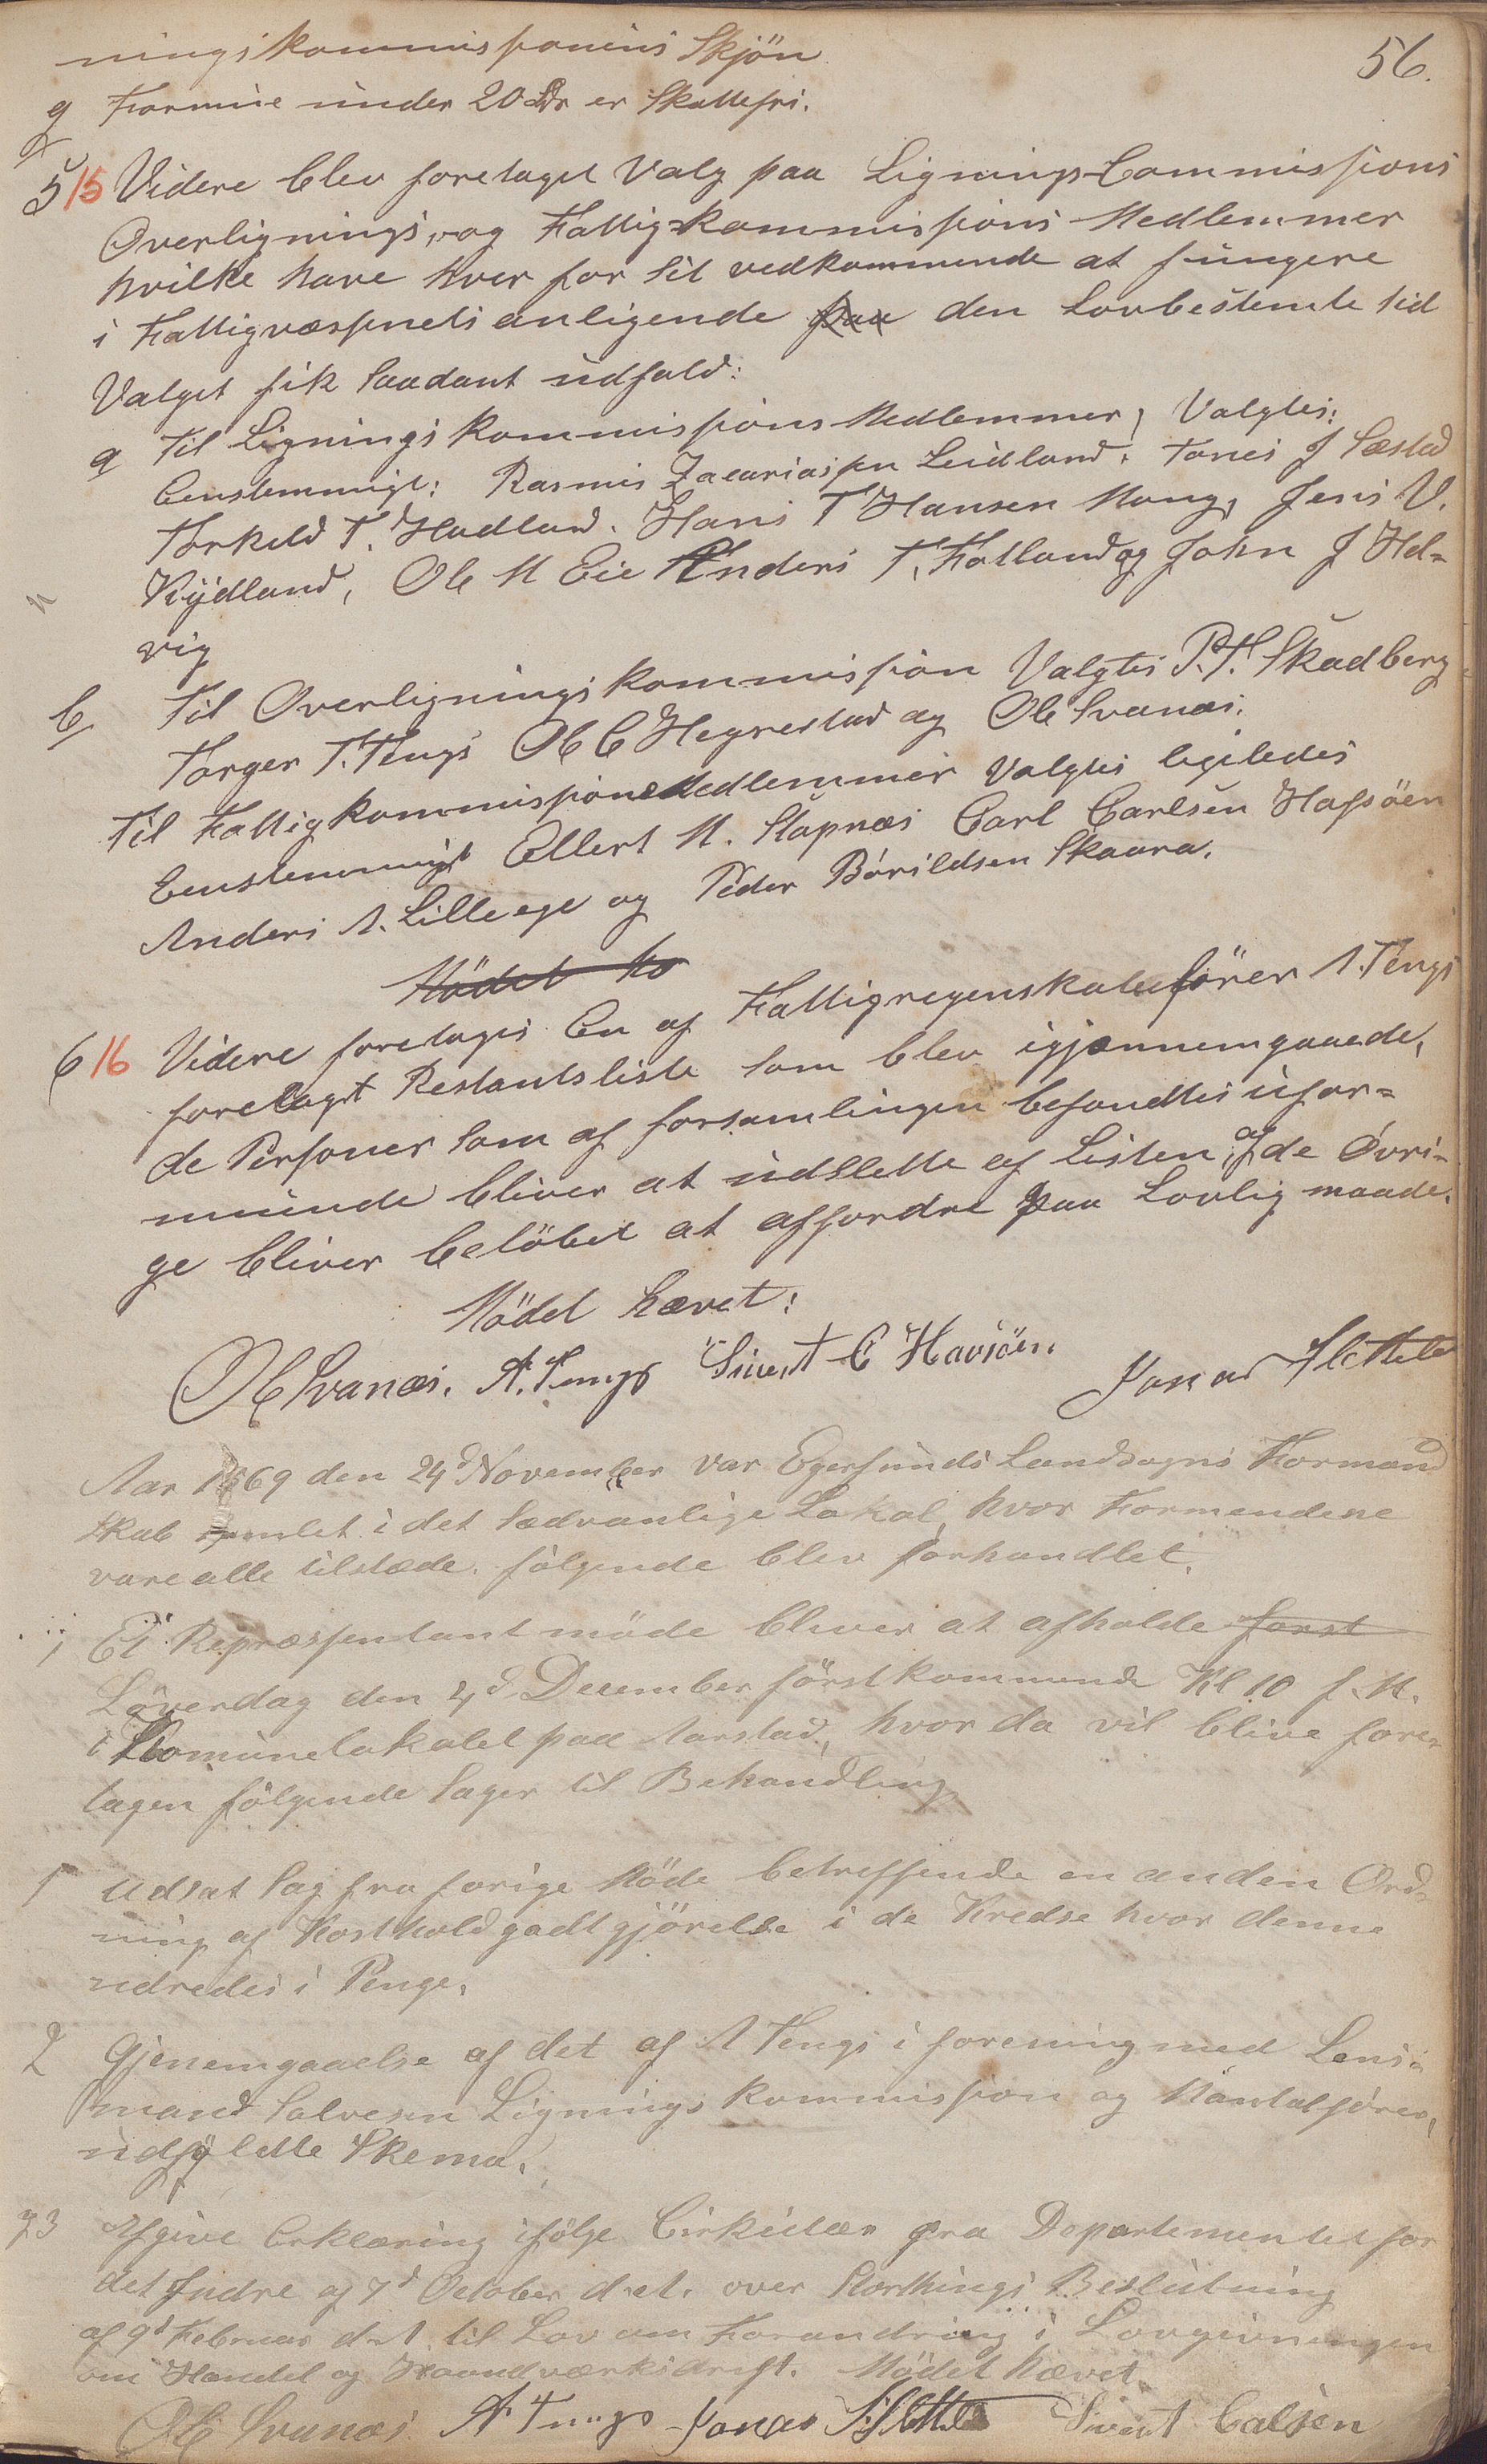 56.
ningskommissionens Skjön
g Formue under 20 Sdr er Skattefri.
5/15 Videre blev foretaget Valg paa Ligningscommissions
Overlignings, og Fattigkommissions Medlemmer
hvilke have hver for sit vedkommende at fungere
i Fattigvæsenets anligende paa den Lovbestemte tid
Valget fik saadant udfald:
a Til Ligningskommissions Medlemmer, Valgtes:
Eenstemmigt: Rasmus Zacariassen Leidland. Tønes J Sæstad
Torkeld T. Hadland. Hans T Hansen Mong, Jens V.
Kydland, Ole M Eie Anders T. Fotland og John J Hel-
vig
b/ Til Overligningskommission Valgtes P. T. Skadberg
Torger T. Tengs Ole C Hegrestad og Ole Svanæs.
Til Fattigkommissions Medlemmer Valgtes ligeledes
Eenstemmigt Ellert M. Stapnæs Carl Carlsen Hafsöen
Anders A. Lilleege og Peder Bårildsen Skaara.
Mödet hæ
6 16 Videre foretages En af Fattigregenskabsförer A. Tengs
forelagt Restantsliste som blev igjænnemgaaede,
de Personer som af forsamlingen befandtes ufor-
muende bliver at udslette af Listen, af de Övri-
ge bliver belöbet at affordre paa Lovlig maade.
Mödet hævet:
Ole Svanæs. A. Tengs Sivert C Havsöen. Jonas Slettebø
Aar 1869 den 24d November var Egersunds Landsogns Formand
skab samlet i det sædvanlige Lokal, hvor Formendene
vare alle tilstæde. följende blev forhandlet.
1 Et Repræsentantmöde bliver at afholde först
Löverdag den 4d December förstkommende Kl 10 f. M.
i Komunelokalet paa Aarstad, hvor da vil blive fore-
tagen fölgende Sager til Behandling
1 Udsat Sag fra forige Möde betreffende en anden Ord-
ning af Kostholdgodtgjörelse i de Kredse hvor denne
udredes i Penge.
2 Gjenemgaaelse af det af A Tengs i forening med Lens-
mand Salvesen Ligningskommission og Mantalförer,
udfyldte Skema.
3 Afgive Erklæring ifölge Cirkulær fra Departementet for
det Indre af 7d October d. A. over Storthings Beslutning
af 9d Februar d. A. til Lov om Forandring i Lovgivningen
om Handel og Haandværksdrift. Mödet hævet.
Ole Svanæs A. Tengs Jonas Slettebø Sivert Calsen